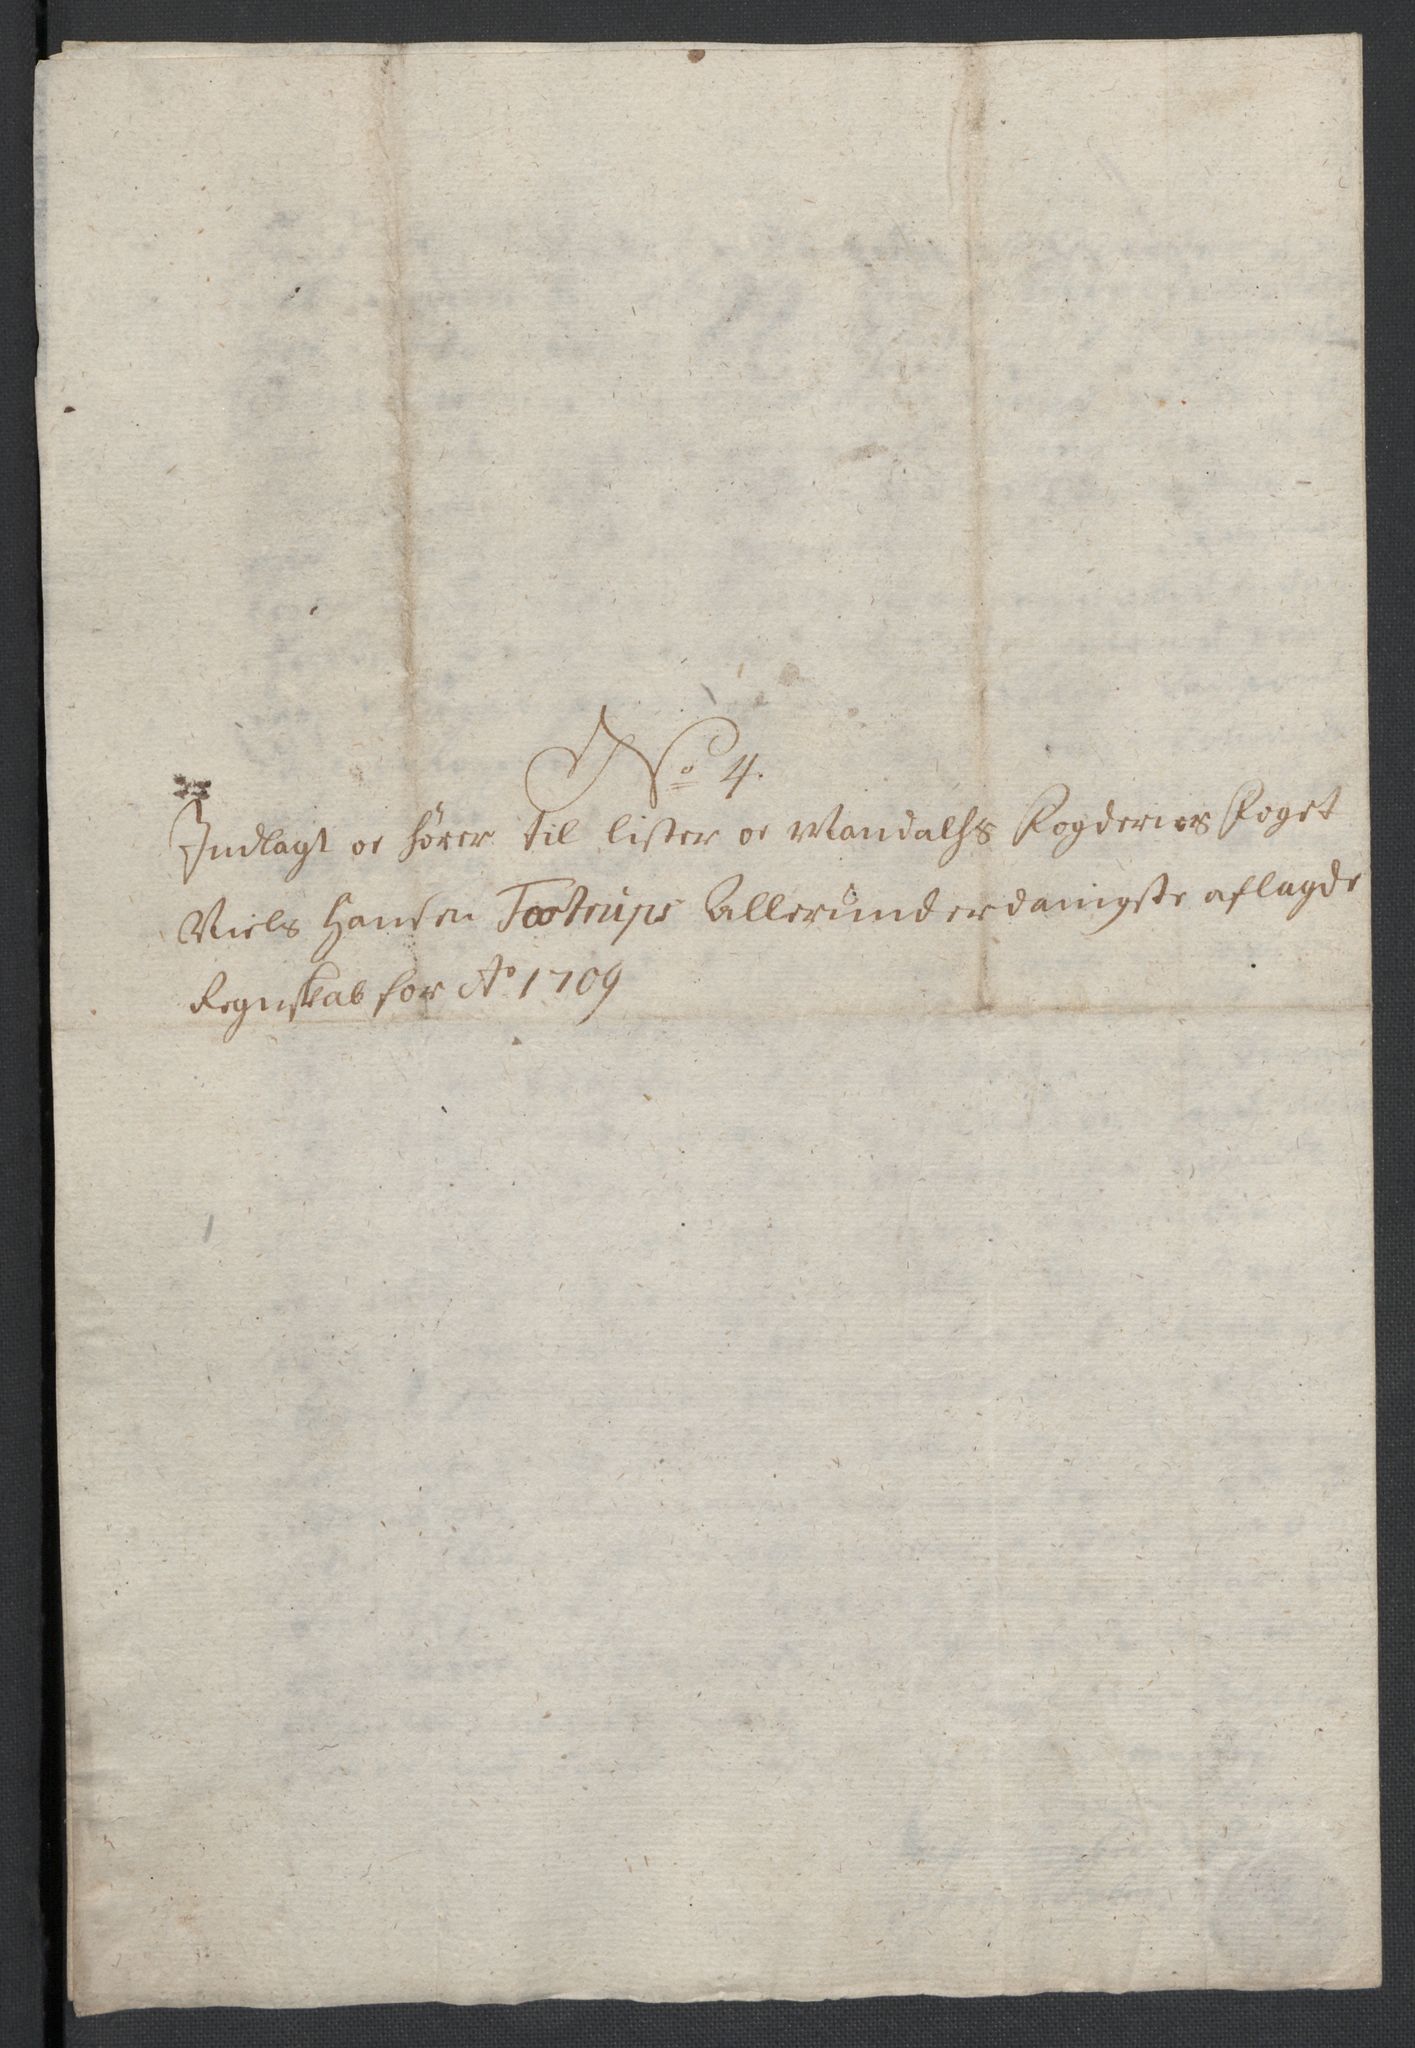 No 4.
Indlagt oc hører til lister oc Mandahls fogderies foget
Niels Hansen Tostrups Allerunderdanigste aflagde
Regnskab for Ao 1709